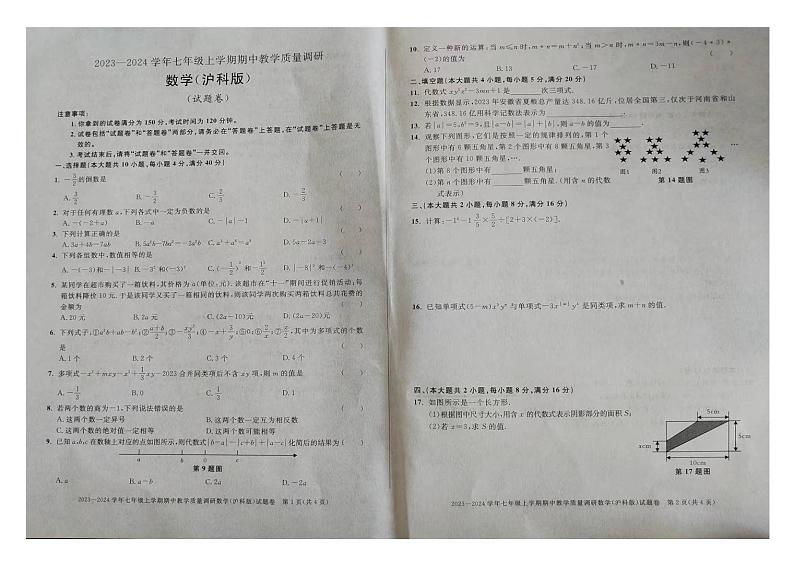 2023—2024学年七年级上学期期中教学质量调研
数学(沪科版)
(试题卷)
注意事项:
1. 你拿到的试卷满分为150分,考试时间为120分钟。
2. 试卷包括“试题卷”和“答题卷”两部分,请务必在“答题卷”上答题,在“试题卷”上答题是无
效的。
3. 考试结束后,请将“试题卷”和“答题卷”一并交回。
一、选择题(本大题共10小题,每小题4分,满分40分)
1. -3/2的倒数是 ( )
A. 3/2 B. -3/2 C. 2/3 D. -2/3
2. 对于任何有理数a,下列各式中一定为负数的是 ( )
A. -(-2+a) B. -a C. -|a|-1 D. -|a+1|
3. 下列计算正确的是 ( )
A. 3a+4b=7ab B. 5a²b-7ba²=-2a²b C. a²+a⁴=a⁶ D. 5a-2a=3
4. 下列各组数中,数值相等的是 ( )
A. -(-3)和-|-3| B. -3²和(-3)²
5. 某同学在超市购买了一箱饮料,其价格为a(单位:元). 该超市在“十一”期间进行促销活动:每
箱饮料降价10元. 于是该同学又买了一箱相同的饮料,则该同学两次购买两箱饮料总共花费的
金额为 ( )
A. 20元 B. 2a元 C. (2a-10)元 D. (2a-20)元
6. 下列式子:①a²b+ab-b²;②(a+b)/2;③-xy²/3;④-x+3/y;⑤0;⑥2/x;⑦x/2,其中为多项式的个数
是 ( )
A. 1个 B. 2个 C. 3个 D. 4个
7. 多项式-x²+mxy-x²+1/3xy-2023合并同类项后不含xy项,则m的值是 ( )
A. -1/3 B. 0 C. 1 D. 1/3
8. 若两个数的商为-1,下列说法错误的是 ( )
A. 这两个数一定异号 B. 这两个数一定互为相反数
C. 这两个数的绝对值一定相等 D. 这两个数一定不相等
9. 已知a,b,c在数轴上对应的点如图所示,则代数式|b-a|-|c+b|+|a-c|化简后的结果为 ( )
a b 0 c
第9题图
A. a B. a-b C. 2a-b D. -2a
2023—2024学年七年级上学期期中教学质量调研数学(沪科版)试题卷 第1页(共4页)
10. 定义一种新的运算:当m≤n时,m*n=m+n²;当m>n时,m*n=3m-n,则(-4*3)*
(-2)的值为 ( )
A. 17 B. 13 C. -17 D. -13
二、填空题(本大题共4小题,每小题5分,满分20分)
11. 代数式xy²-3mn+1是 次三项式.
12. 根据数据显示,2023年安徽省夏粮总产量达348.16亿斤,位居全国第三,仅次于河南省和山
东省. 348.16亿用科学记数法表示为 .
13. 若|a|=5,b²=9,且|a-b|=|a|+|b|,则a-b的值为 .
14. 观察下列图形,它们是按照一定的规律排列的,第1个
图形中有6颗五角星,第2个图形中有8颗五角星,第3
个图形中有10颗五角星,….
(1)第8个图形中有 颗五角星;
(2)第n个图形中有 颗五角星. (用含n的代数
式表示)
图1 图2 图3 …
第14题图
三、(本大题共2小题,每小题8分,满分16分)
15. 计算:-1⁶-1/3×3/5÷5/2÷[2+3×(-2)].
16. 已知单项式(5-m)x³yⁿ与单项式 是同类项,求m+n的值.
四、(本大题共2小题,每小题8分,满分16分)
17. 如图所示是一个长方形.
(1)根据图中尺寸大小,用含x的代数式表示阴影部分的面积S;
(2)若x=3,求S的值.
5cm
5cm
xcm
10cm
第17题图
2023—2024学年七年级上学期期中教学质量调研数学(沪科版)试题卷 第2页(共4页)